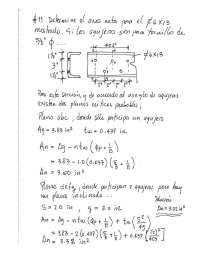 #11 Determine el area neta para el ⌀6x13
mostrado. Si los agujeros son para tornillos de
5/8" ⌀ ...
4@2"
⌀6x13
1½"
3"
1½"
a
b
c
Para esta sección, y de acuerdo al arreglo de agujeros
existen dos planos criticos probables;
Plano abc, donde sólo participa un agujero
Ag = 3.83 in² tw = 0.437 in
An = Ag - n tw (φp + 1/8)
= 3.83 - 1.0 (0.437) (5/8 + 1/8)
An = 3.50 in²
Plano defg, donde participan 2 agujeros pero hay
un plano inclinado...
S = 2.0 in, g = 3.0 in
An = Ag - n tw (φp + 1/8) + tw (s²/4g)
= 3.83 - 2 (0.437) (5/8 + 1/8) + 0.437
An = 3.32 in²
Solución